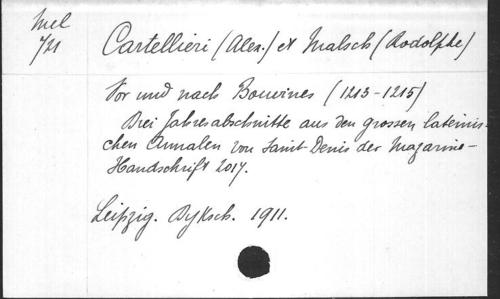 Mel
721
Cartellieri (Alex.) et Malsch (Rodolphe)
Vor und nach Bouvines (1213-1215)
Drei Jahresabschnitte aus den grossen lateinis-
chen Annalen von Saint-Denis der Mazarine-
Handschrift 2017.
Leipzig. Dyksch. 1911.